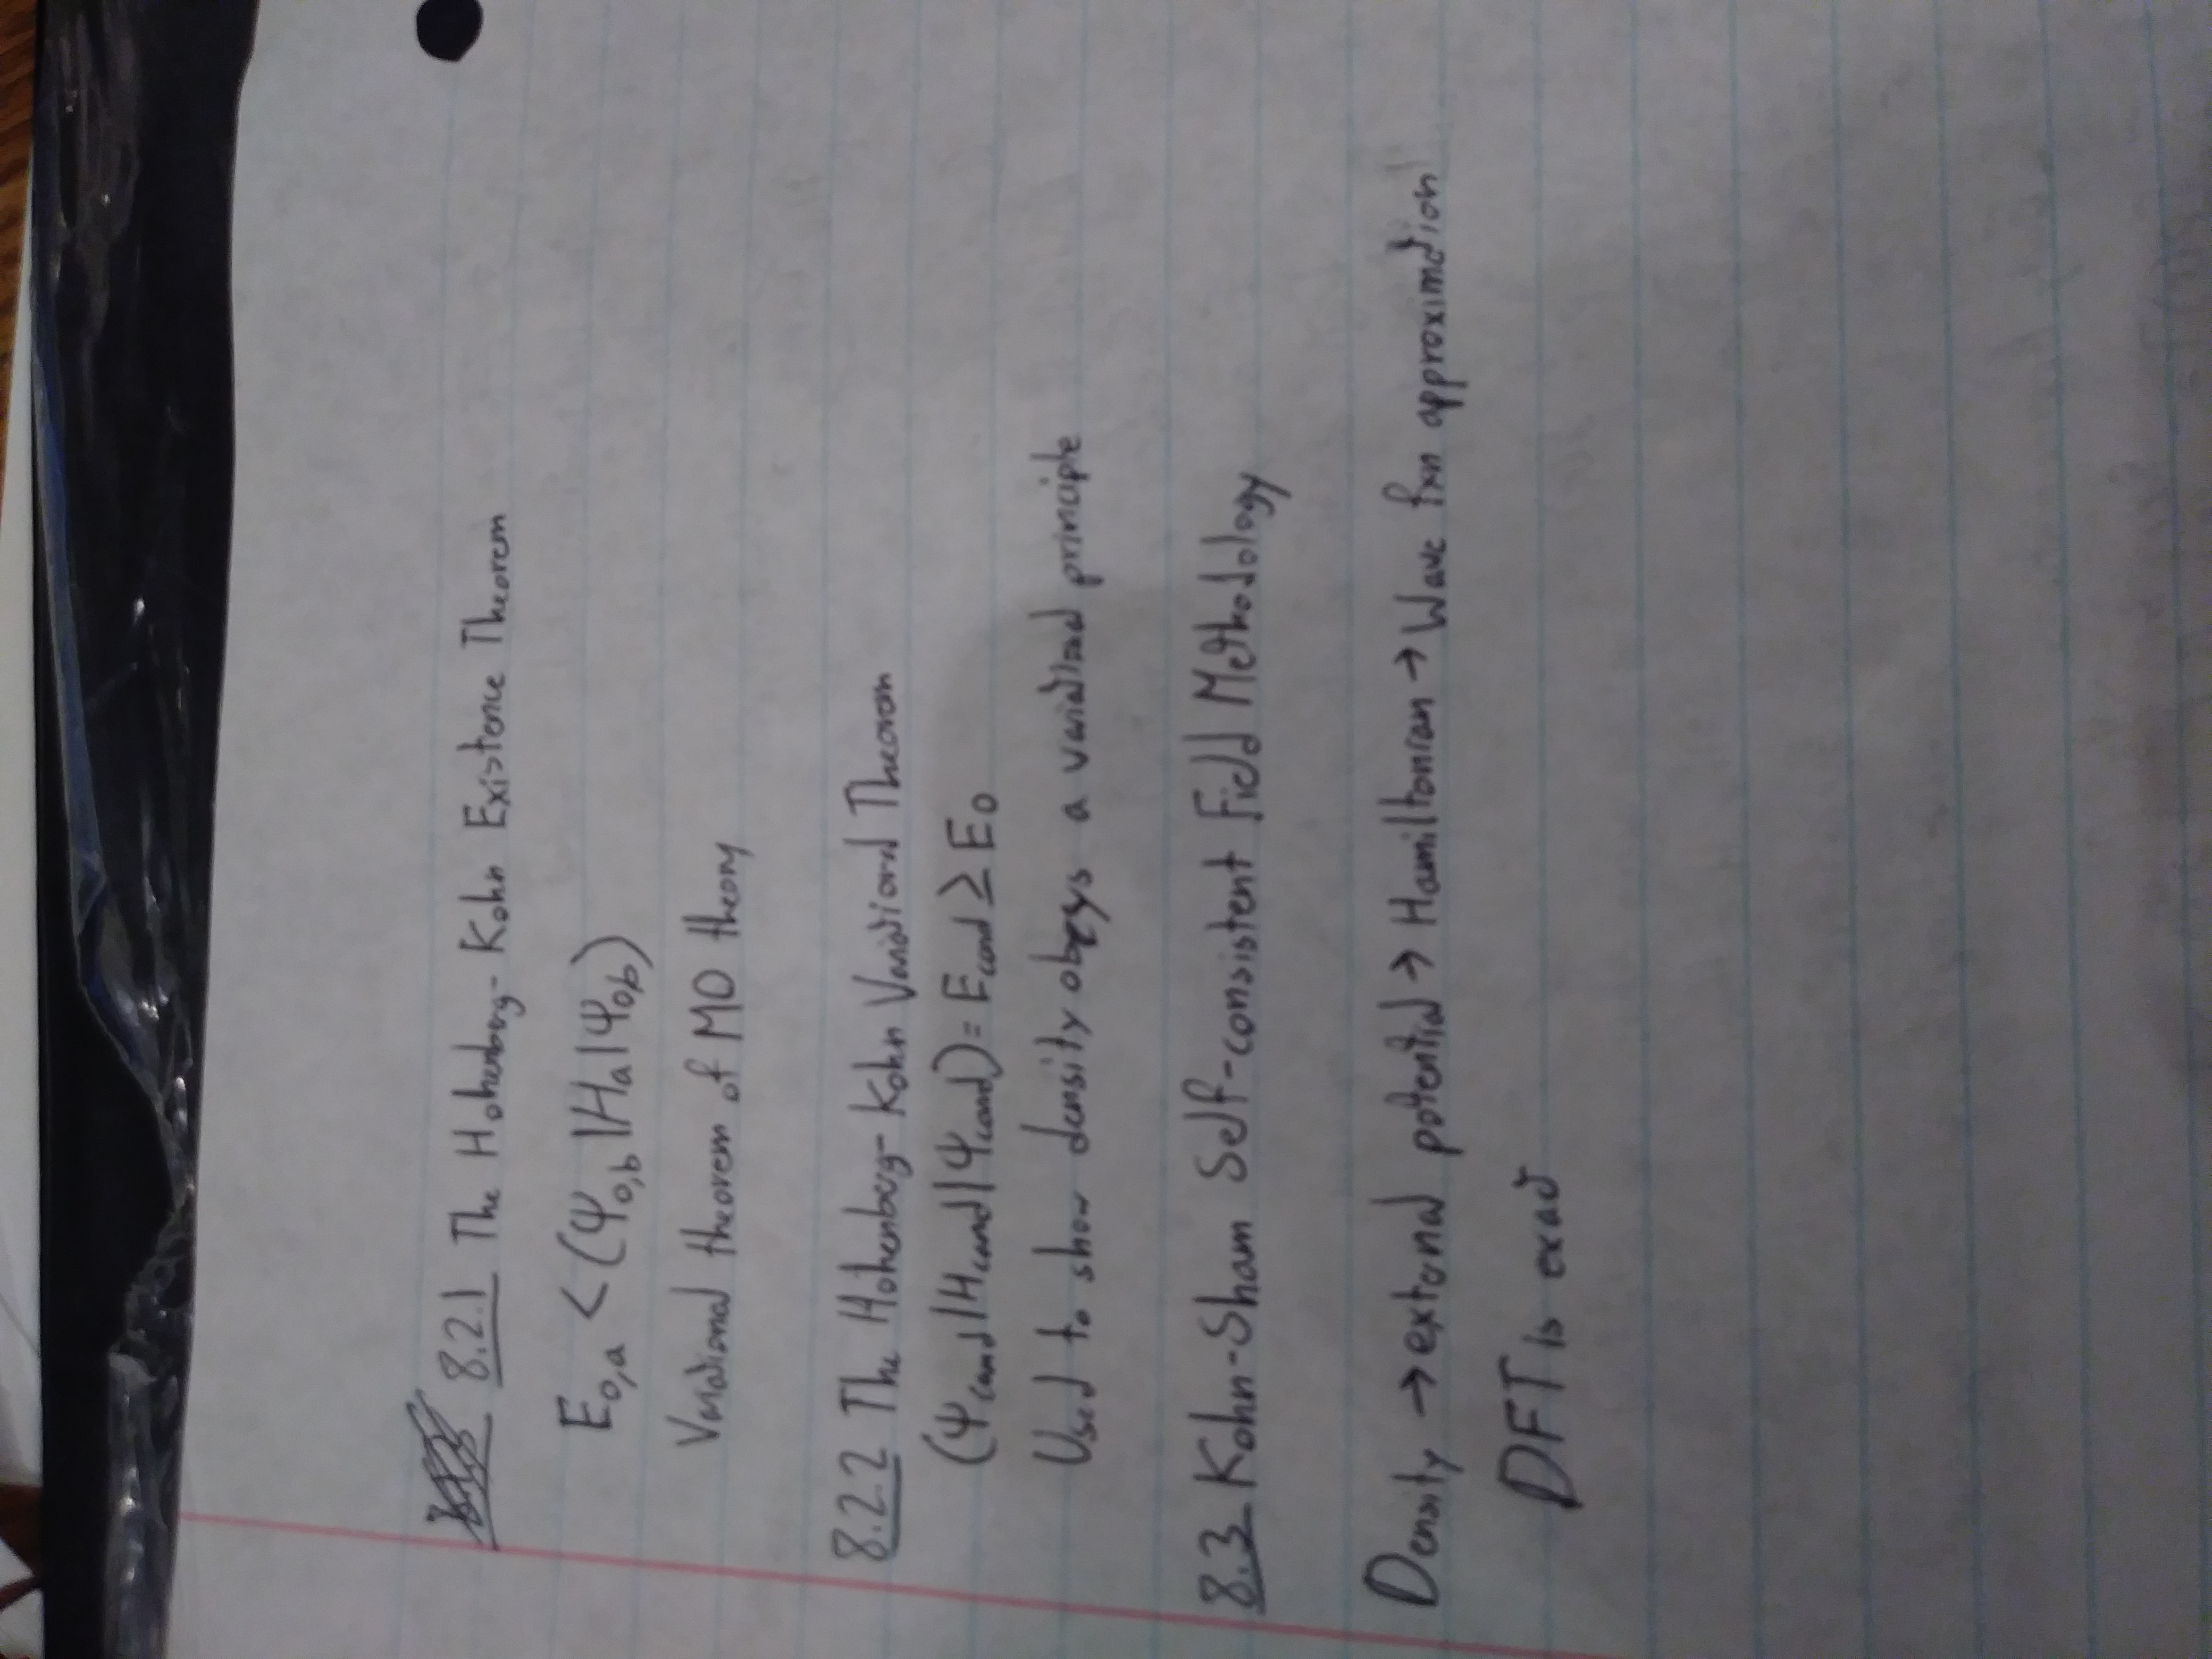 8.2.1 The Hohenberg-Kohn Existence Theorem
E₀,ₐ < (Ψ₀,b|Hₐ|Ψ₀,b)
Variational theorem of MO theory
8.2.2 The Hohenberg-Kohn Variational Theorem
(Ψcand|Hcand|Ψcand) = Ecand ≥ E₀
Used to show density obeys a variational principle
8.3 Kohn-Sham Self-consistent Field Methodology
Density → external potential → Hamiltonian → Wave fxn approximation
DFT is exact